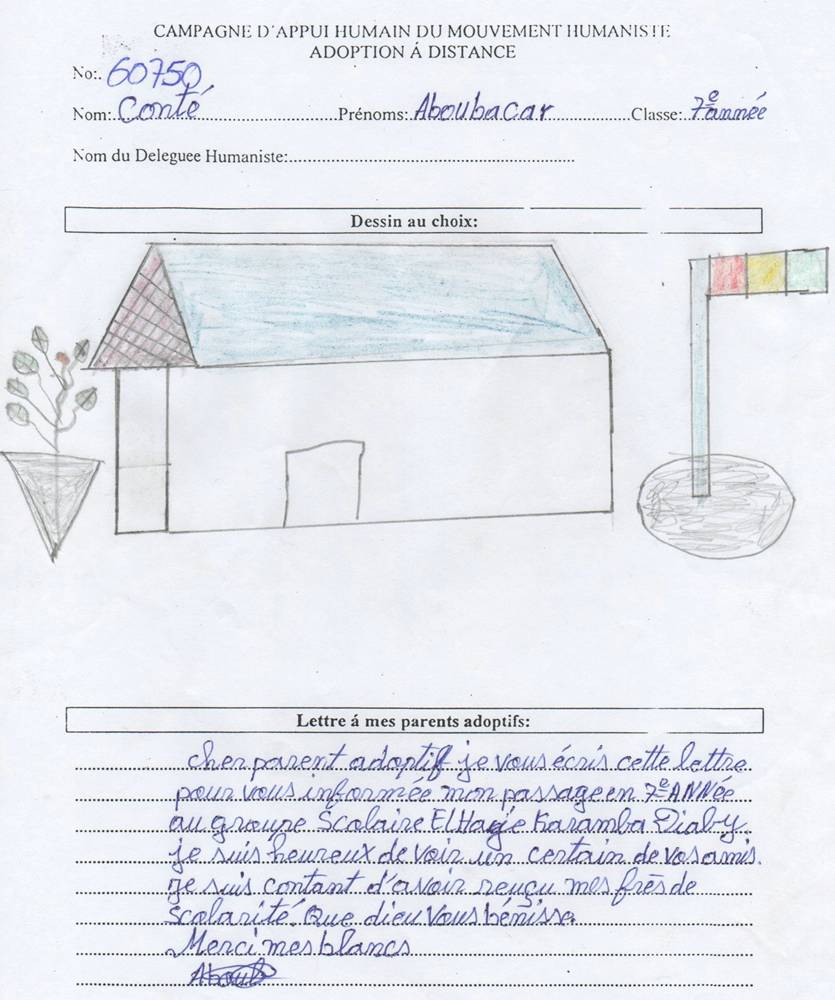 CAMPAGNE D'APPUI HUMAIN DU MOUVEMENT HUMANISTE
ADOPTION Á DISTANCE
No:. 60750
Nom: Conté Prénoms: Aboubacar Classe: 7e année
Nom du Deleguee Humaniste:
Dessin au choix:
Lettre á mes parents adoptifs:
cher parent adoptif je vous écris cette lettre
pour vous informée mon passage en 7e ANNée
au groupe Scolaire ElHagje Karamba Diaby.
je suis heureux de voir un certain de vos amis.
je suis contant d'avoir reuçu mes frès de
Scolarité. Que dieu Vous bénisse
Merci mes blancs
Aboub